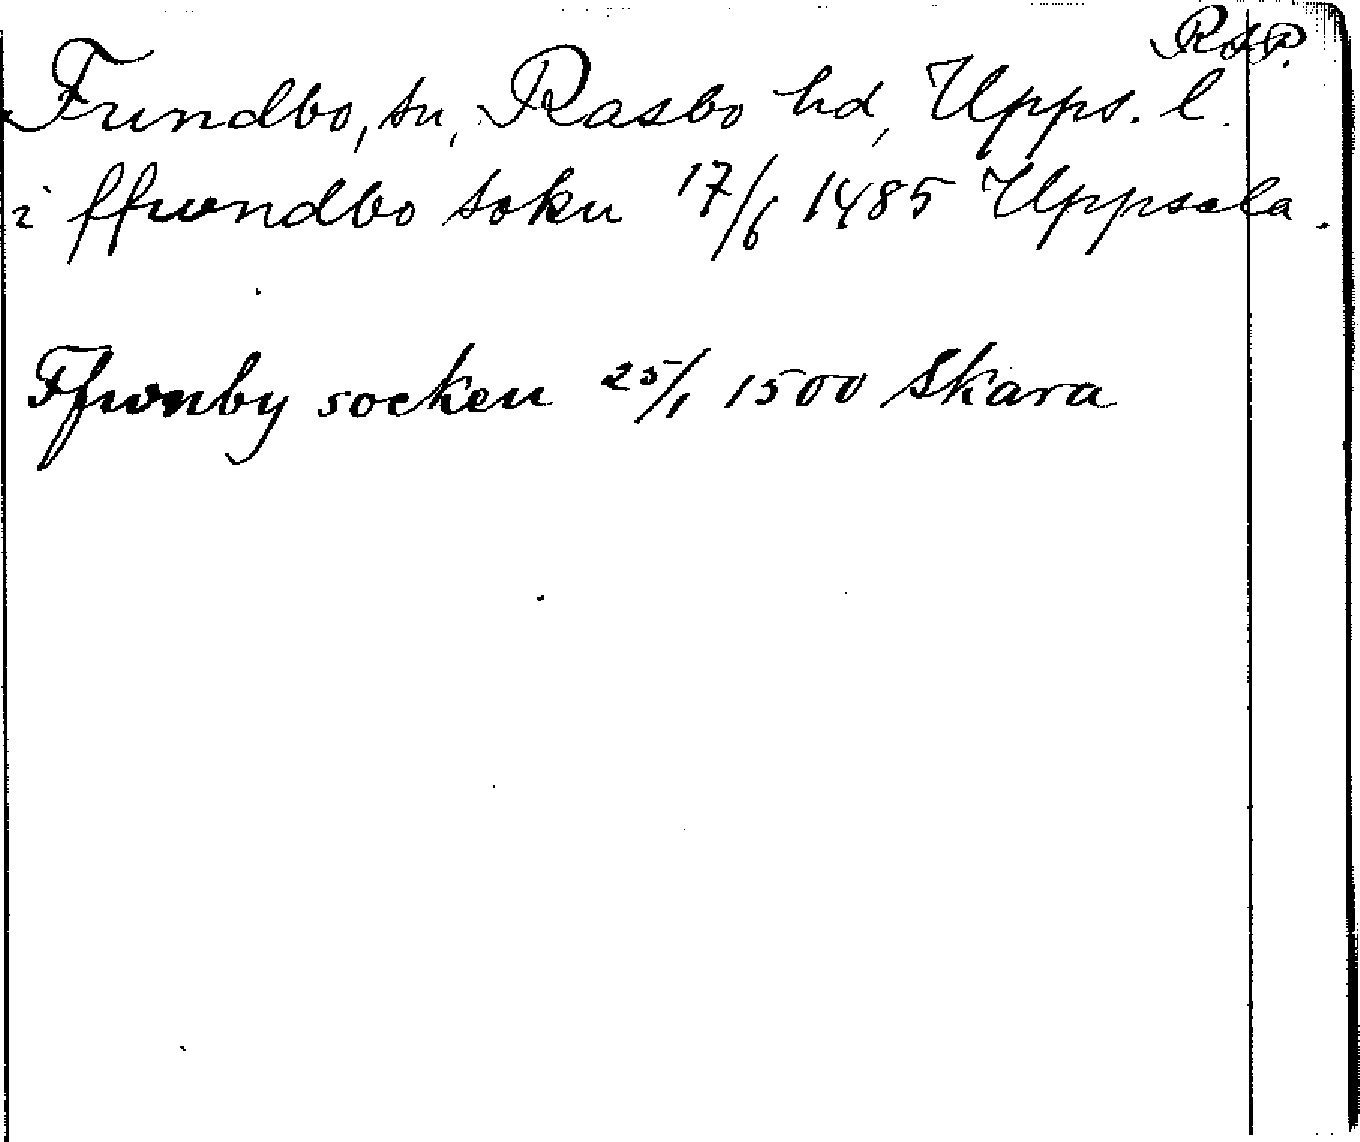 RAP.
Fundbo, sn, Rasbo hd, Upps. l.
i ffwndbo sokn 17/6 1485 Uppsala.
Ffwnby socken 25/1 1500 Skara